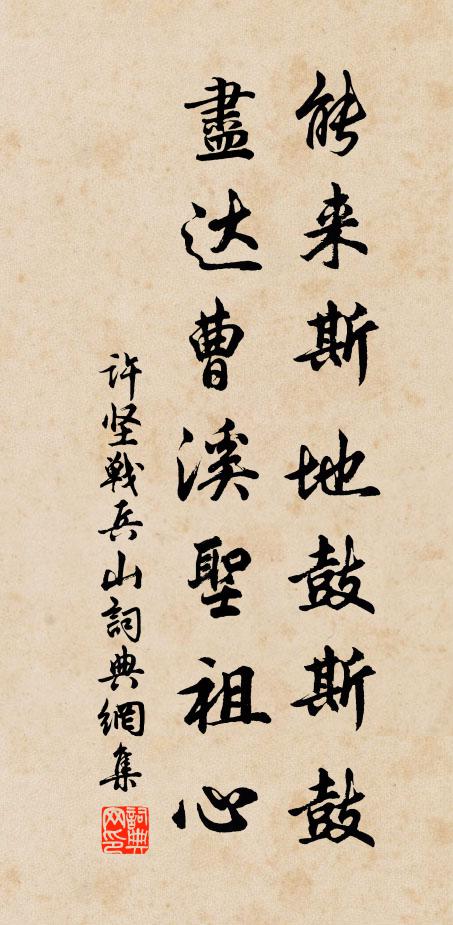 能来斯地鼓斯鼓
盡达曹溪聖祖心
许坚戰兵山詞典網集
詞典网印